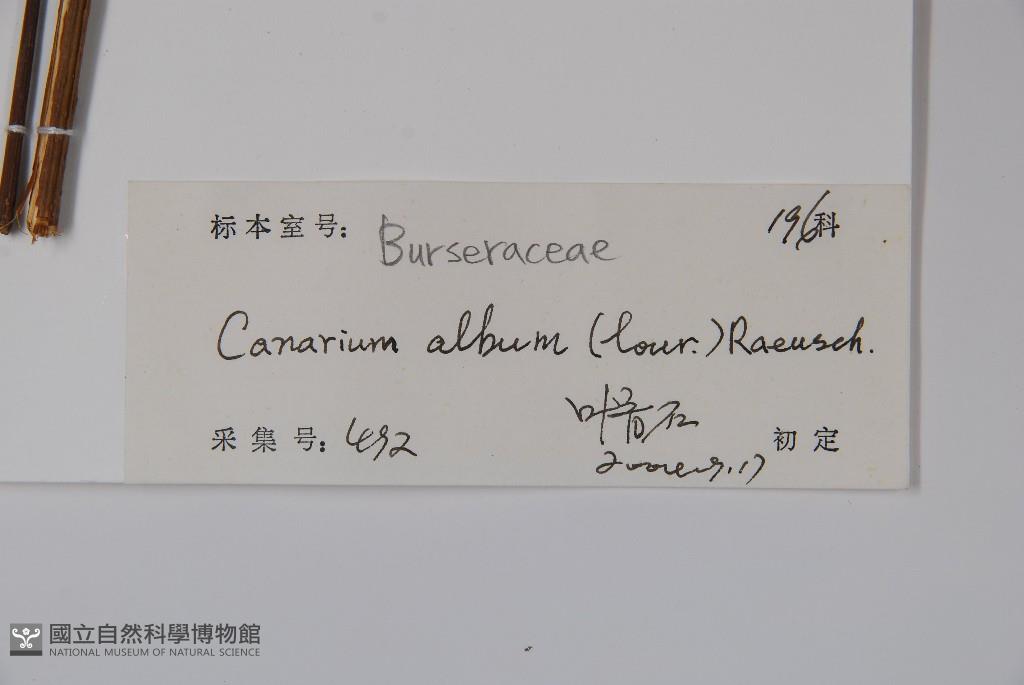 标本室号： Burseraceae 196科
Canarium album (Lour.) Raeusch.
采集号： 492 初定
國立自然科學博物館
NATIONAL MUSEUM OF NATURAL SCIENCE